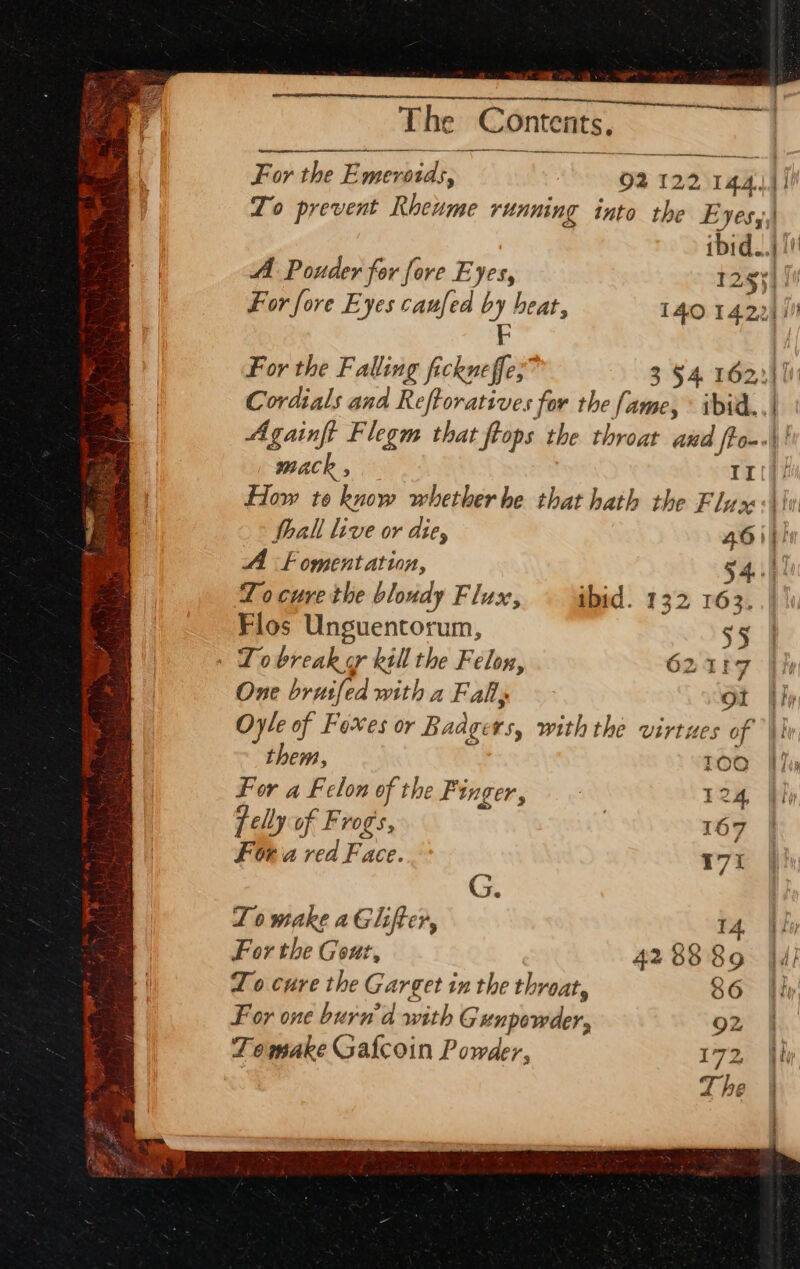 The Contents.
For the Emeroids, 92 122 144.
To prevent Rheume running into the Eyes,
ibid.
A Pouder for ſore Eyes, 125
For ſore Eyes cauſed by heat, 140 142
F
For the Falling ſickneſſe, 3 54 162
Cordials and Reſtoratives for the ſame, ibid.
Againſt Flegm that ſtops the throat and ſto-
mack, 11
How to know whether he that hath the Flux
ſhall live or die, 46
A Fomentation, 54.
To cure the bloudy Flux, ibid. 132 163.
Flos Unguentorum, 55
To break or kill the Felon, 62 117
One bruiſed with a Fall, 91
Oyle of Foxes or Badgers, with the virtues of
them, 100
For a Felon of the Finger, 124
Jelly of Frogs, 167
For a red Face. 171
G.
To make a Gliſter, 14
For the Gout, 42 88 89
To cure the Garget in the throat, 86
For one burn'd with Gunpowder, 92
To make Gaſcoin Powder, 172
The